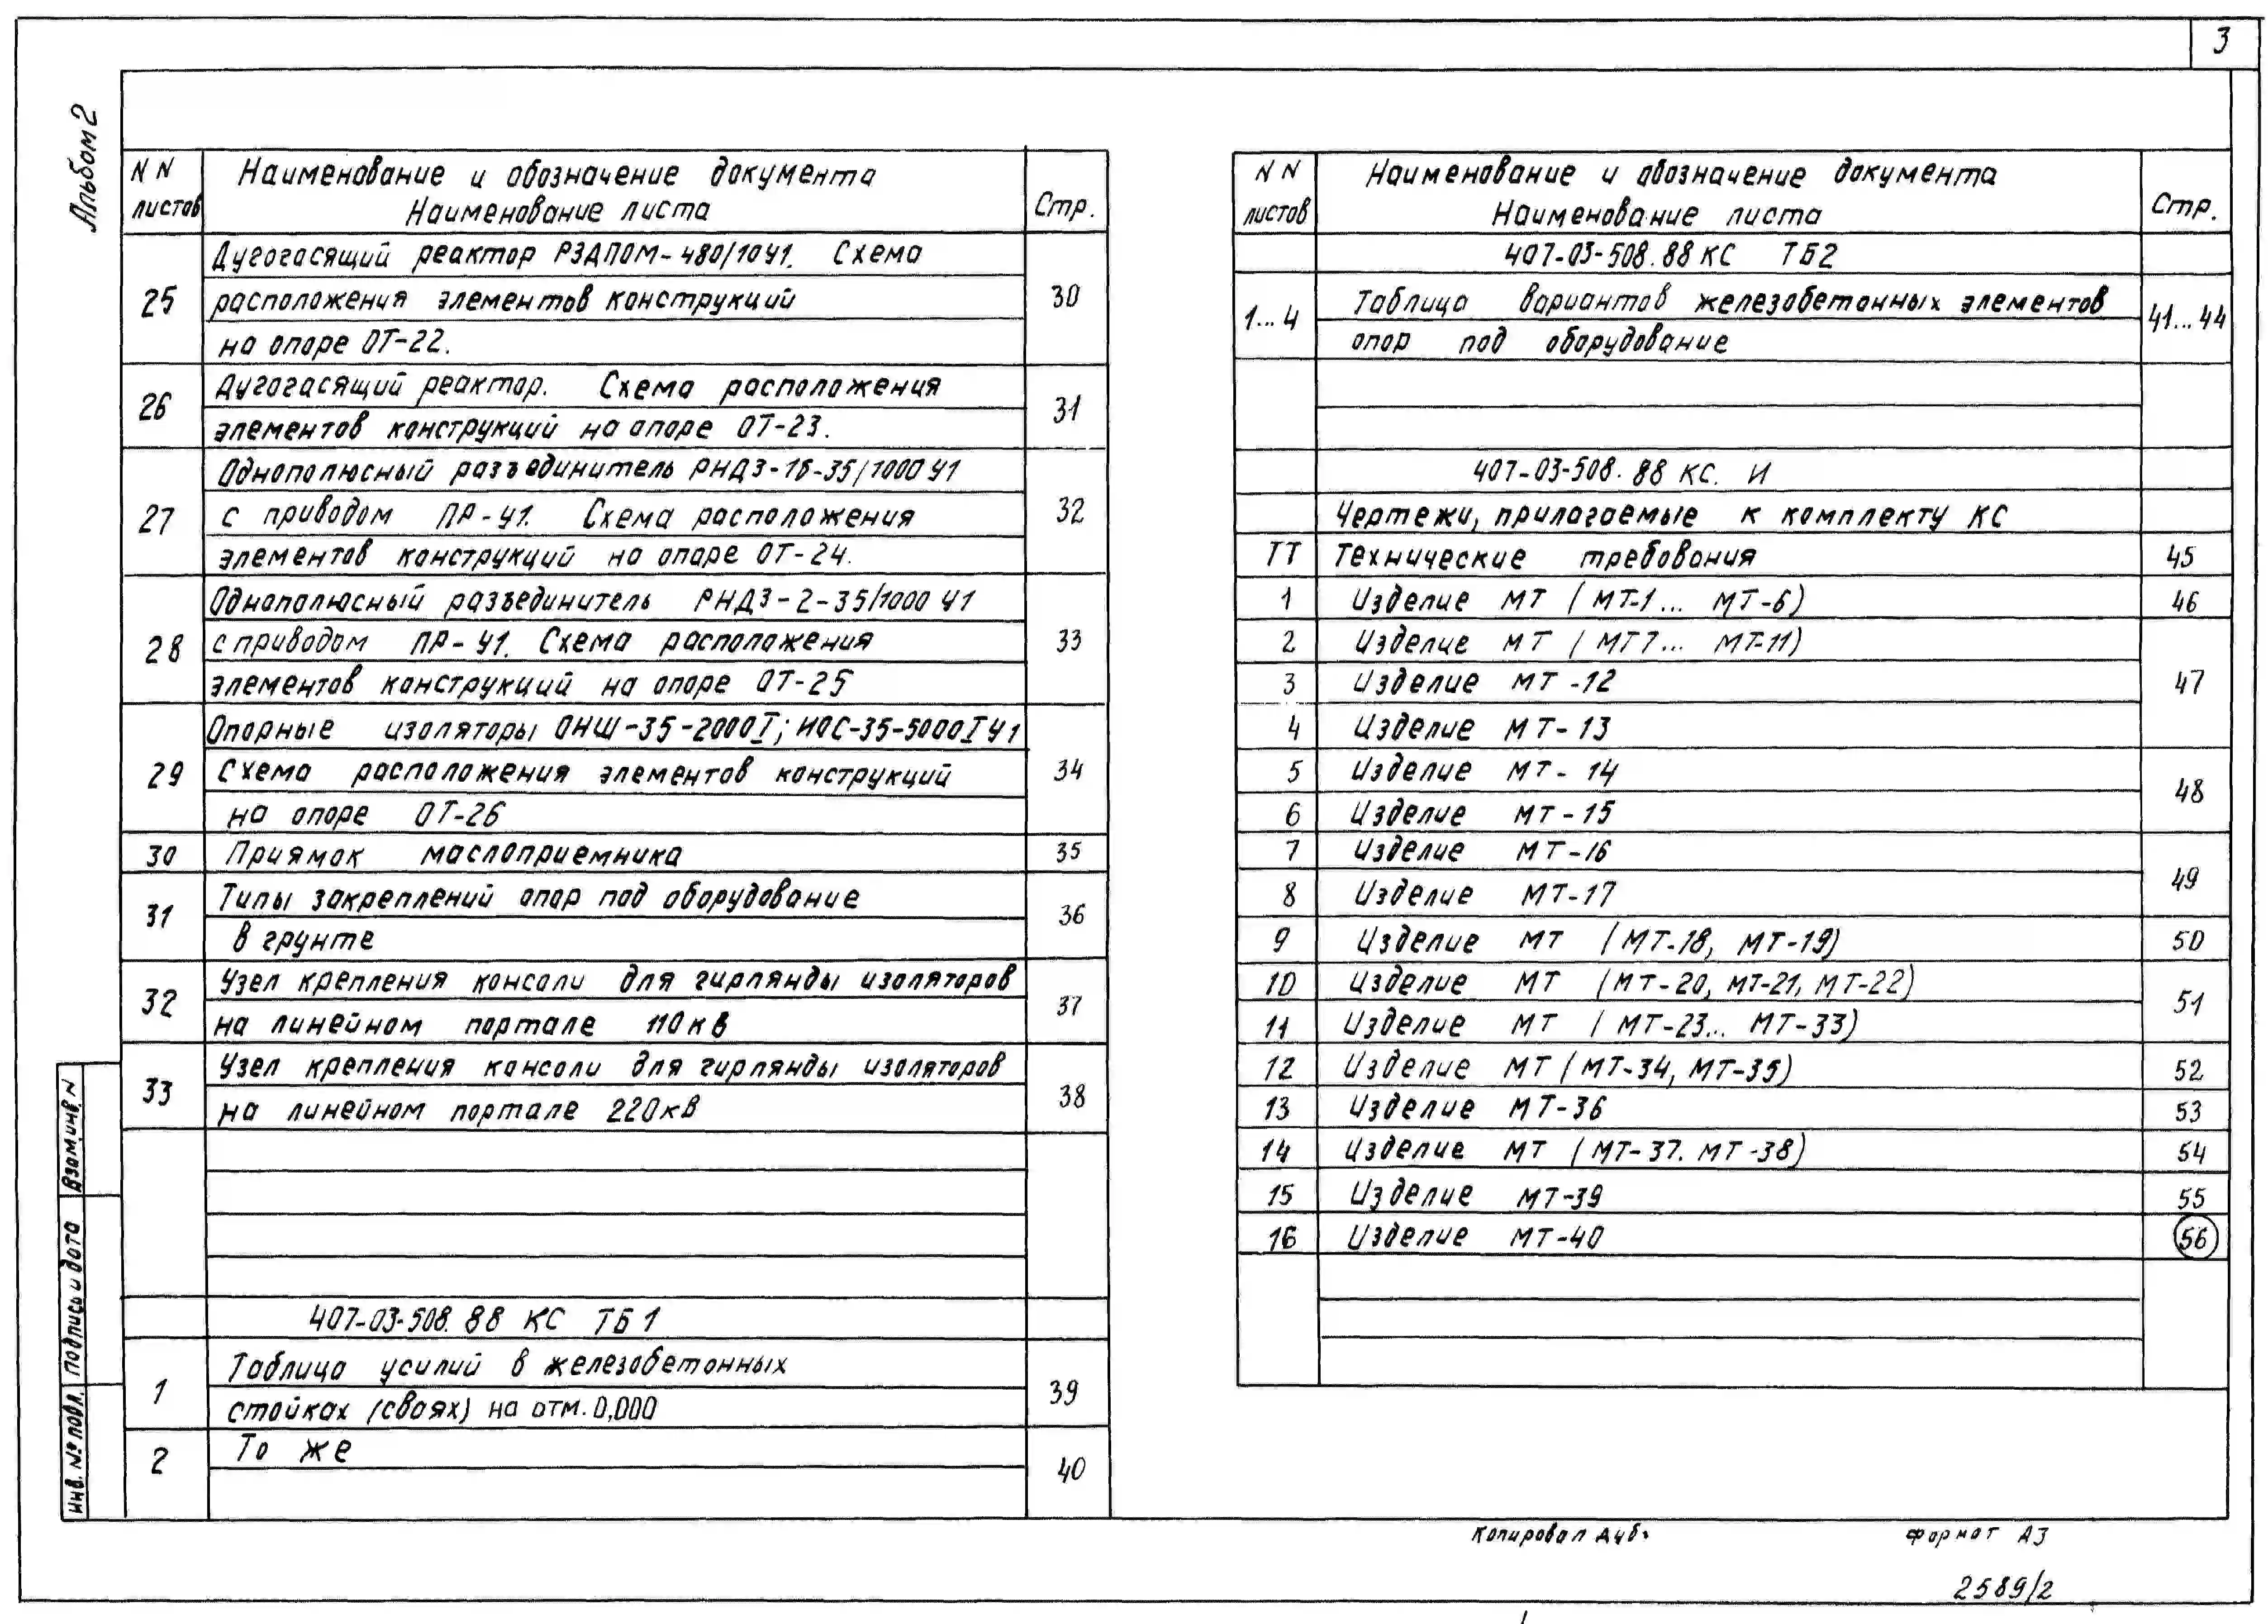 3
Альбом 2
NN листов
Наименование и обозначение документа
Наименование листа
Стр.
25
Дугогасящий реактор РЗДПОМ-480/10У1. Схема
расположения элементов конструкций
на опоре ОТ-22.
30
26
Дугогасящий реактор. Схема расположения
элементов конструкций на опоре ОТ-23.
31
27
Однополюсный разъединитель РНДЗ-1б-35/1000 У1
с приводом ПР-У1. Схема расположения
элементов конструкций на опоре ОТ-24.
32
28
Однополюсный разъединитель РНДЗ-2-35/1000 У1
с приводом ПР-У1. Схема расположения
элементов конструкций на опоре ОТ-25
33
29
Опорные изоляторы ОНШ-35-2000I; ИОС-35-5000I У1
Схема расположения элементов конструкций
на опоре ОТ-26
34
30 Приямок маслоприемника 35
31
Типы закреплений опор под оборудование
в грунте
36
32
Узел крепления консоли для гирлянды изоляторов
на линейном портале 110кВ
37
33
Узел крепления консоли для гирлянды изоляторов
на линейном портале 220кВ
38
407-03-508.88 КС ТБ1
1
Таблица усилий в железобетонных
стойках (сваях) на отм. 0,000
39
2 То же 40
NN листов
Наименование и обозначение документа
Наименование листа
Стр.
407-03-508.88 КС ТБ2
1...4
Таблица вариантов железобетонных элементов
опор под оборудование
41...44
407-03-508.88 КС. И
Чертежи, прилагаемые к комплекту КС
ТТ Технические требования 45
1 Изделие МТ (МТ-1... МТ-6) 46
2 Изделие МТ (МТ7... МТ-11)
3 Изделие МТ-12 47
4 Изделие МТ-13
5 Изделие МТ-14
6 Изделие МТ-15 48
7 Изделие МТ-16
8 Изделие МТ-17 49
9 Изделие МТ (МТ-18, МТ-19) 50
10 Изделие МТ (МТ-20, МТ-21, МТ-22)
11 Изделие МТ (МТ-23... МТ-33) 51
12 Изделие МТ (МТ-34, МТ-35) 52
13 Изделие МТ-36 53
14 Изделие МТ (МТ-37. МТ-38) 54
15 Изделие МТ-39 55
16 Изделие МТ-40 56
Взам.инв.N
Подпись и дата
Инв. № подл.
Копировал Дуб.
Формат А3
2589/2